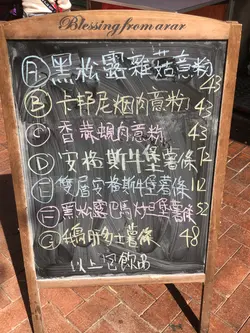 Blessing from arar
A 黑松露雜菇意粉 43
B 卡邦尼烟肉意粉 43
C 香蒜蜆肉意粉 43
D 安格斯牛堡薯條 72
E 雙層安格斯牛堡薯條 112
F 黑松露巴馬火腿堡薯條 52
G 鵝肝多士薯條 48
以上包飲品